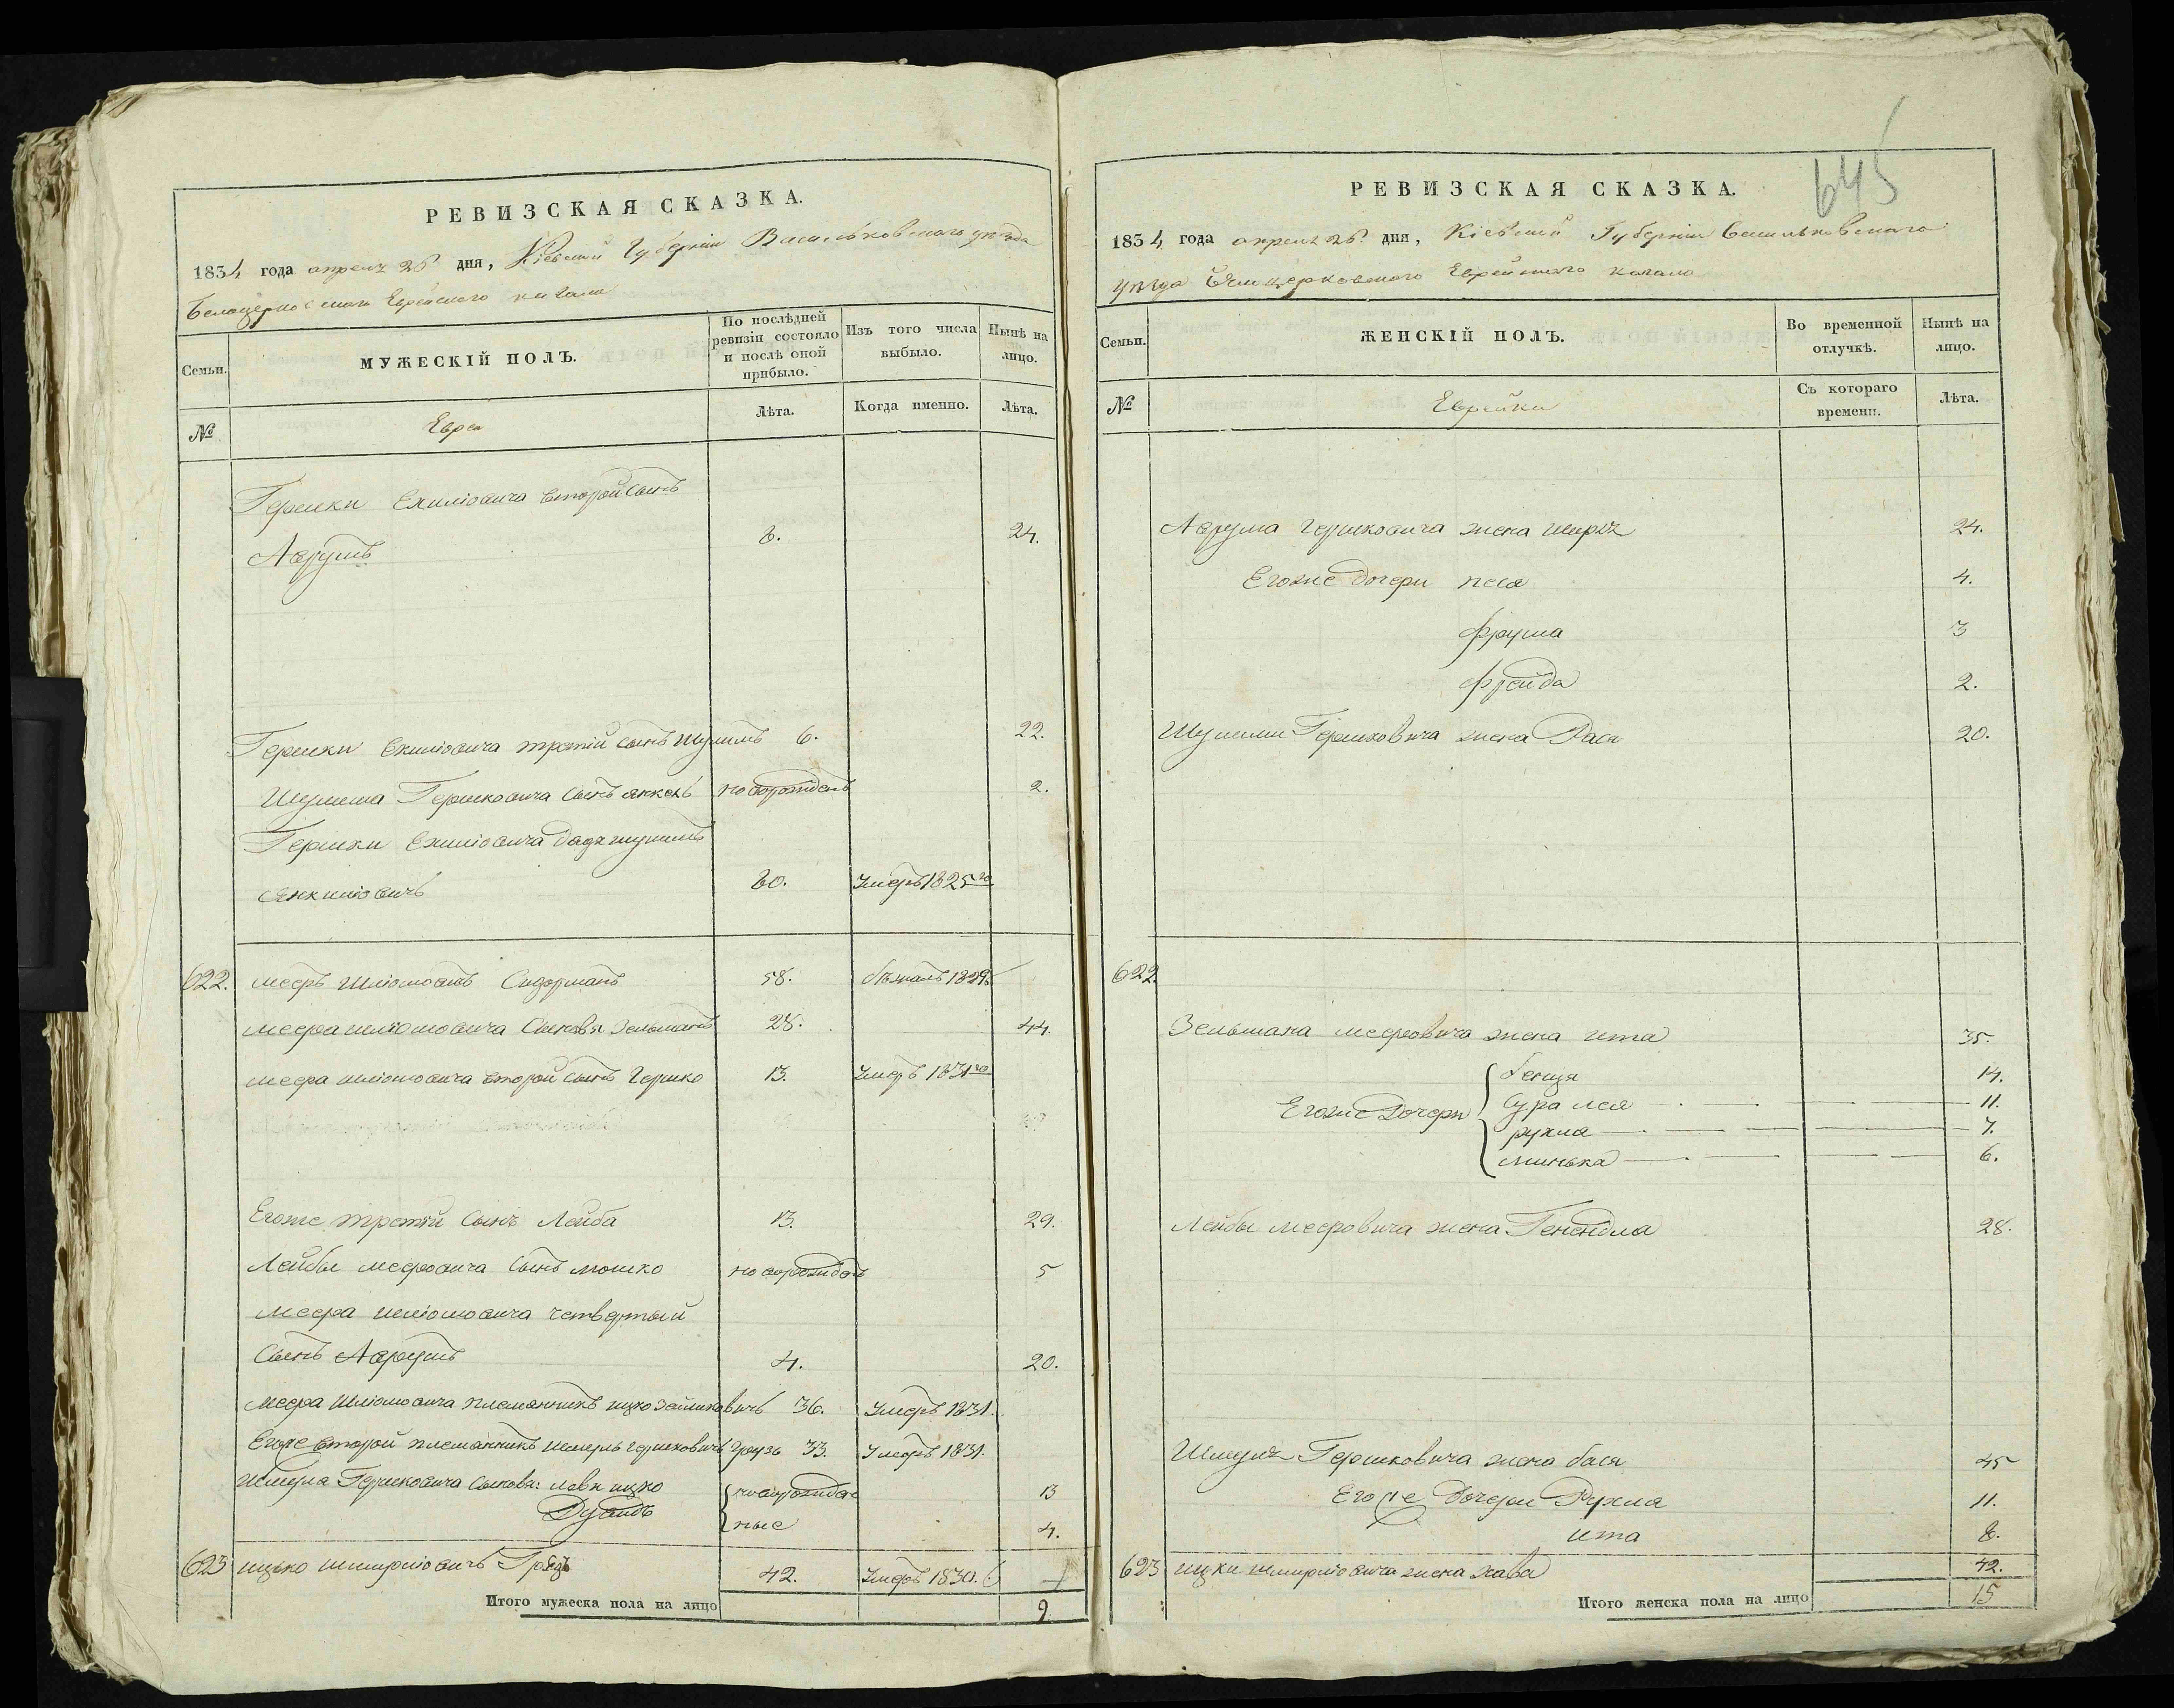 РЕВИЗСКАЯ СКАЗКА.
1834 года апреля 26 дня, Кіевской Губерніи Васильковского уезда
Белоцерковского Еврейского кагала
Семьи.
МУЖЕСКІЙ ПОЛЪ.
По послѣдней ревизіи состояло и послѣ оной прибыло.
Изъ того числа выбыло.
Нынѣ на лицо.
№
Евреи
Лѣта.
Когда именно.
Лѣта.
Гершки Ехиліовича второй сынъ
Аврумъ 6. 24.
Гершки Ехиліовича третій сынъ Шулимъ 6. 22.
Шулима Гершковича сынъ Янкель новорожденъ 2.
Гершки Ехиліовича дядя шулимъ
Янкиліовичъ 60. умеръ 1825го
622. меер Шліомовичъ 58. бежалъ 1829.
меера шліомовича сыновья Зельманъ 28. 44.
меера шліомовича второй сынъ Гершко 13. умеръ 1831го
Егоже третій сынъ Лейба 13. 29.
Лейбы мееровича сынъ мошко новорожденъ 5
меера шліомовича четвертый
сынъ Аврумъ 4. 20.
меера Шліомовича племянникъ ицко 36. умеръ 1831.
Егоже второй племянникъ шмуль гершковичъ 33. умеръ 1831.
шмуля Гершковича сыновя: ицко новорожден 13
Дувидъ ные 4.
623 ицько шмиріовичъ 42. умеръ 1830.
Итого мужеска пола на лицо 9
645
РЕВИЗСКАЯ СКАЗКА.
1834 года апреля 26 дня, Кіевской Губерніи Васильковского
уезда Белоцерковского Еврейского кагала
Семьи.
ЖЕНСКІЙ ПОЛЪ.
Во временной отлучкѣ.
Нынѣ на лицо.
№
Еврейки
Съ котораго времени.
Лѣта.
Аврума гершковича жена 24.
Егоже дочери песя 4.
фрума 3
фрейда 2.
Шулима Гершковича жена Рася 20.
622.
Зельмана мееровича жена ита 35.
бенця 14.
Егоже Дочери сура лея 11.
рухля 7.
минька 6.
Лейбы мееровича жена Генендля 28.
Шмуля Гершковича жена бася 45
Егоже дочери Рухля 11.
ита 8.
623 ицки шмиріовича жена хава 42.
Итого женска пола на лицо 15